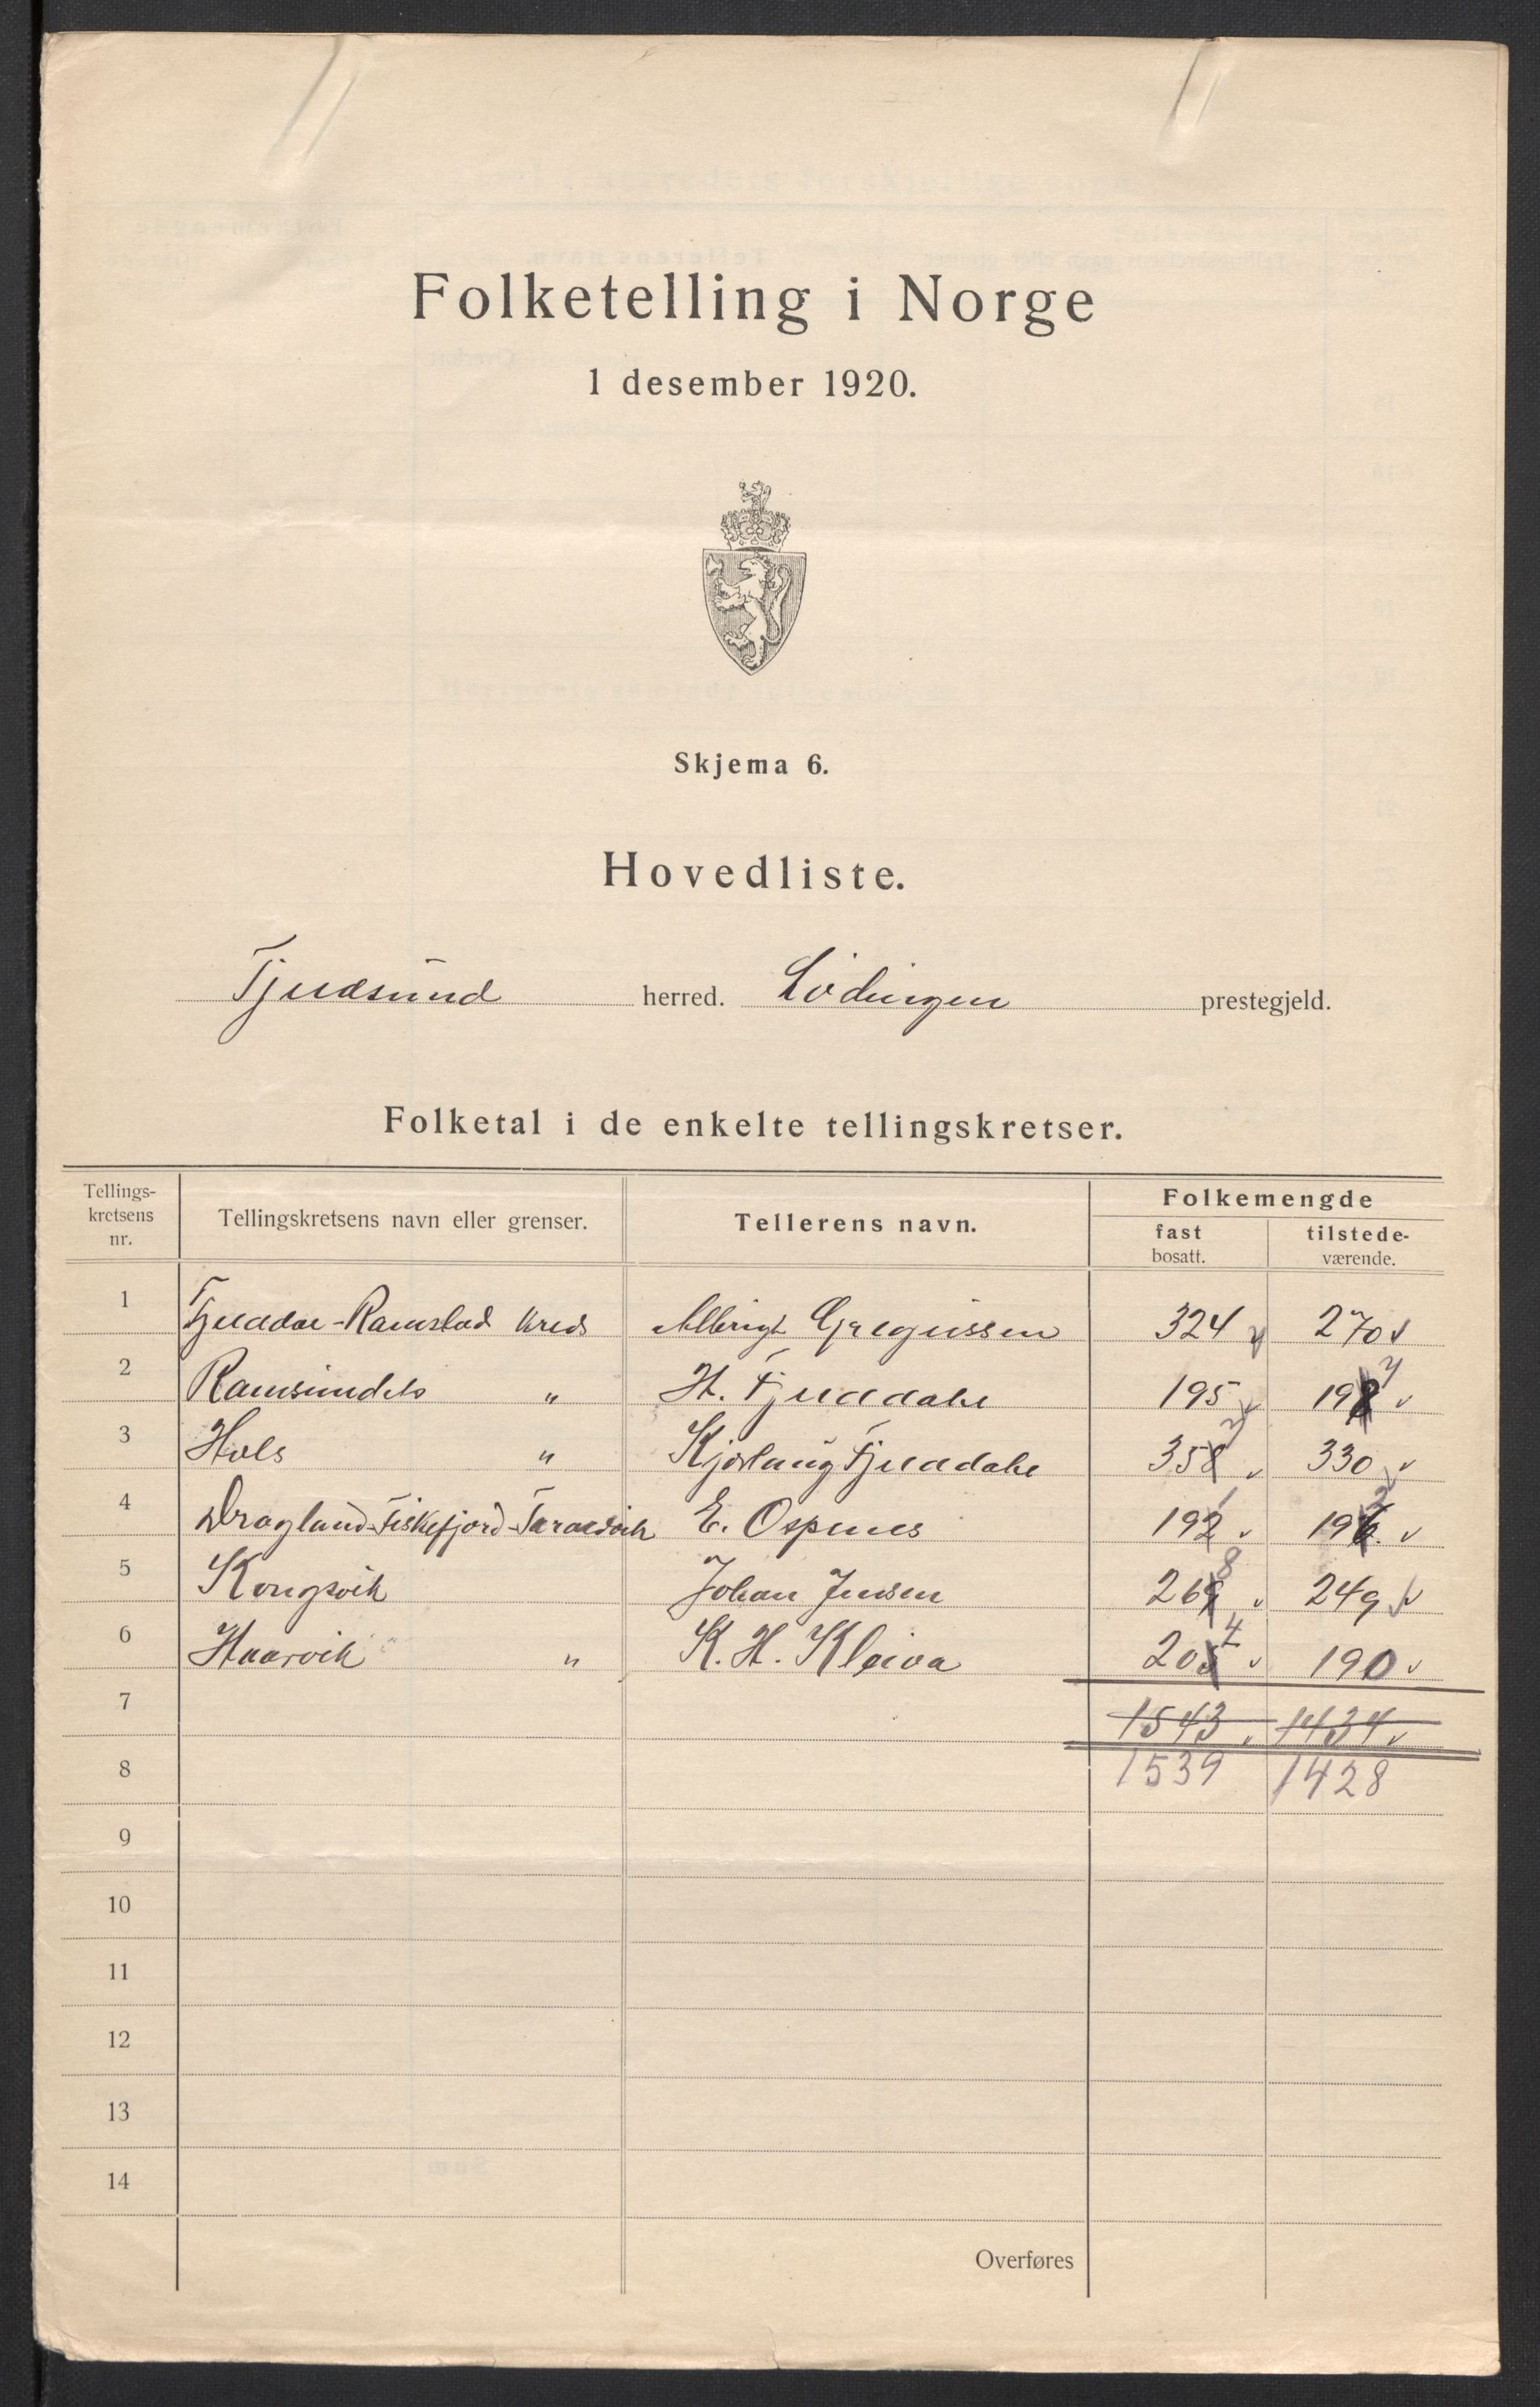 Folketelling i Norge
1 desember 1920.
Skjema 6.
Hovedliste.
Tjeldsund herred. Lødingen prestegjeld.
Folketal i de enkelte tellingskretser.
Tellings-
kretsens
nr.
Tellingskretsens navn eller grenser.
Tellerens navn.
Folkemengde
fast
bosatt.
tilstede-
værende.
1 Fjelddal-Ramstad kreds Albrigt Gregussen 324 270
2 Ramsundets " H. Fjelddahl 195 198 7
3 Hols " Kjærlaug Fjelddahl 358 330
4 Dragland-Fiskefjord-Taraldsvik E. Ospenes 192 196 2
5 Kongsvik Johan Jensen 269 8 249
6 Haarvik " K. H. Kleiva 205 4 190
7 1543 1434
8 1539 1428
9
10
11
12
13
14
Overføres